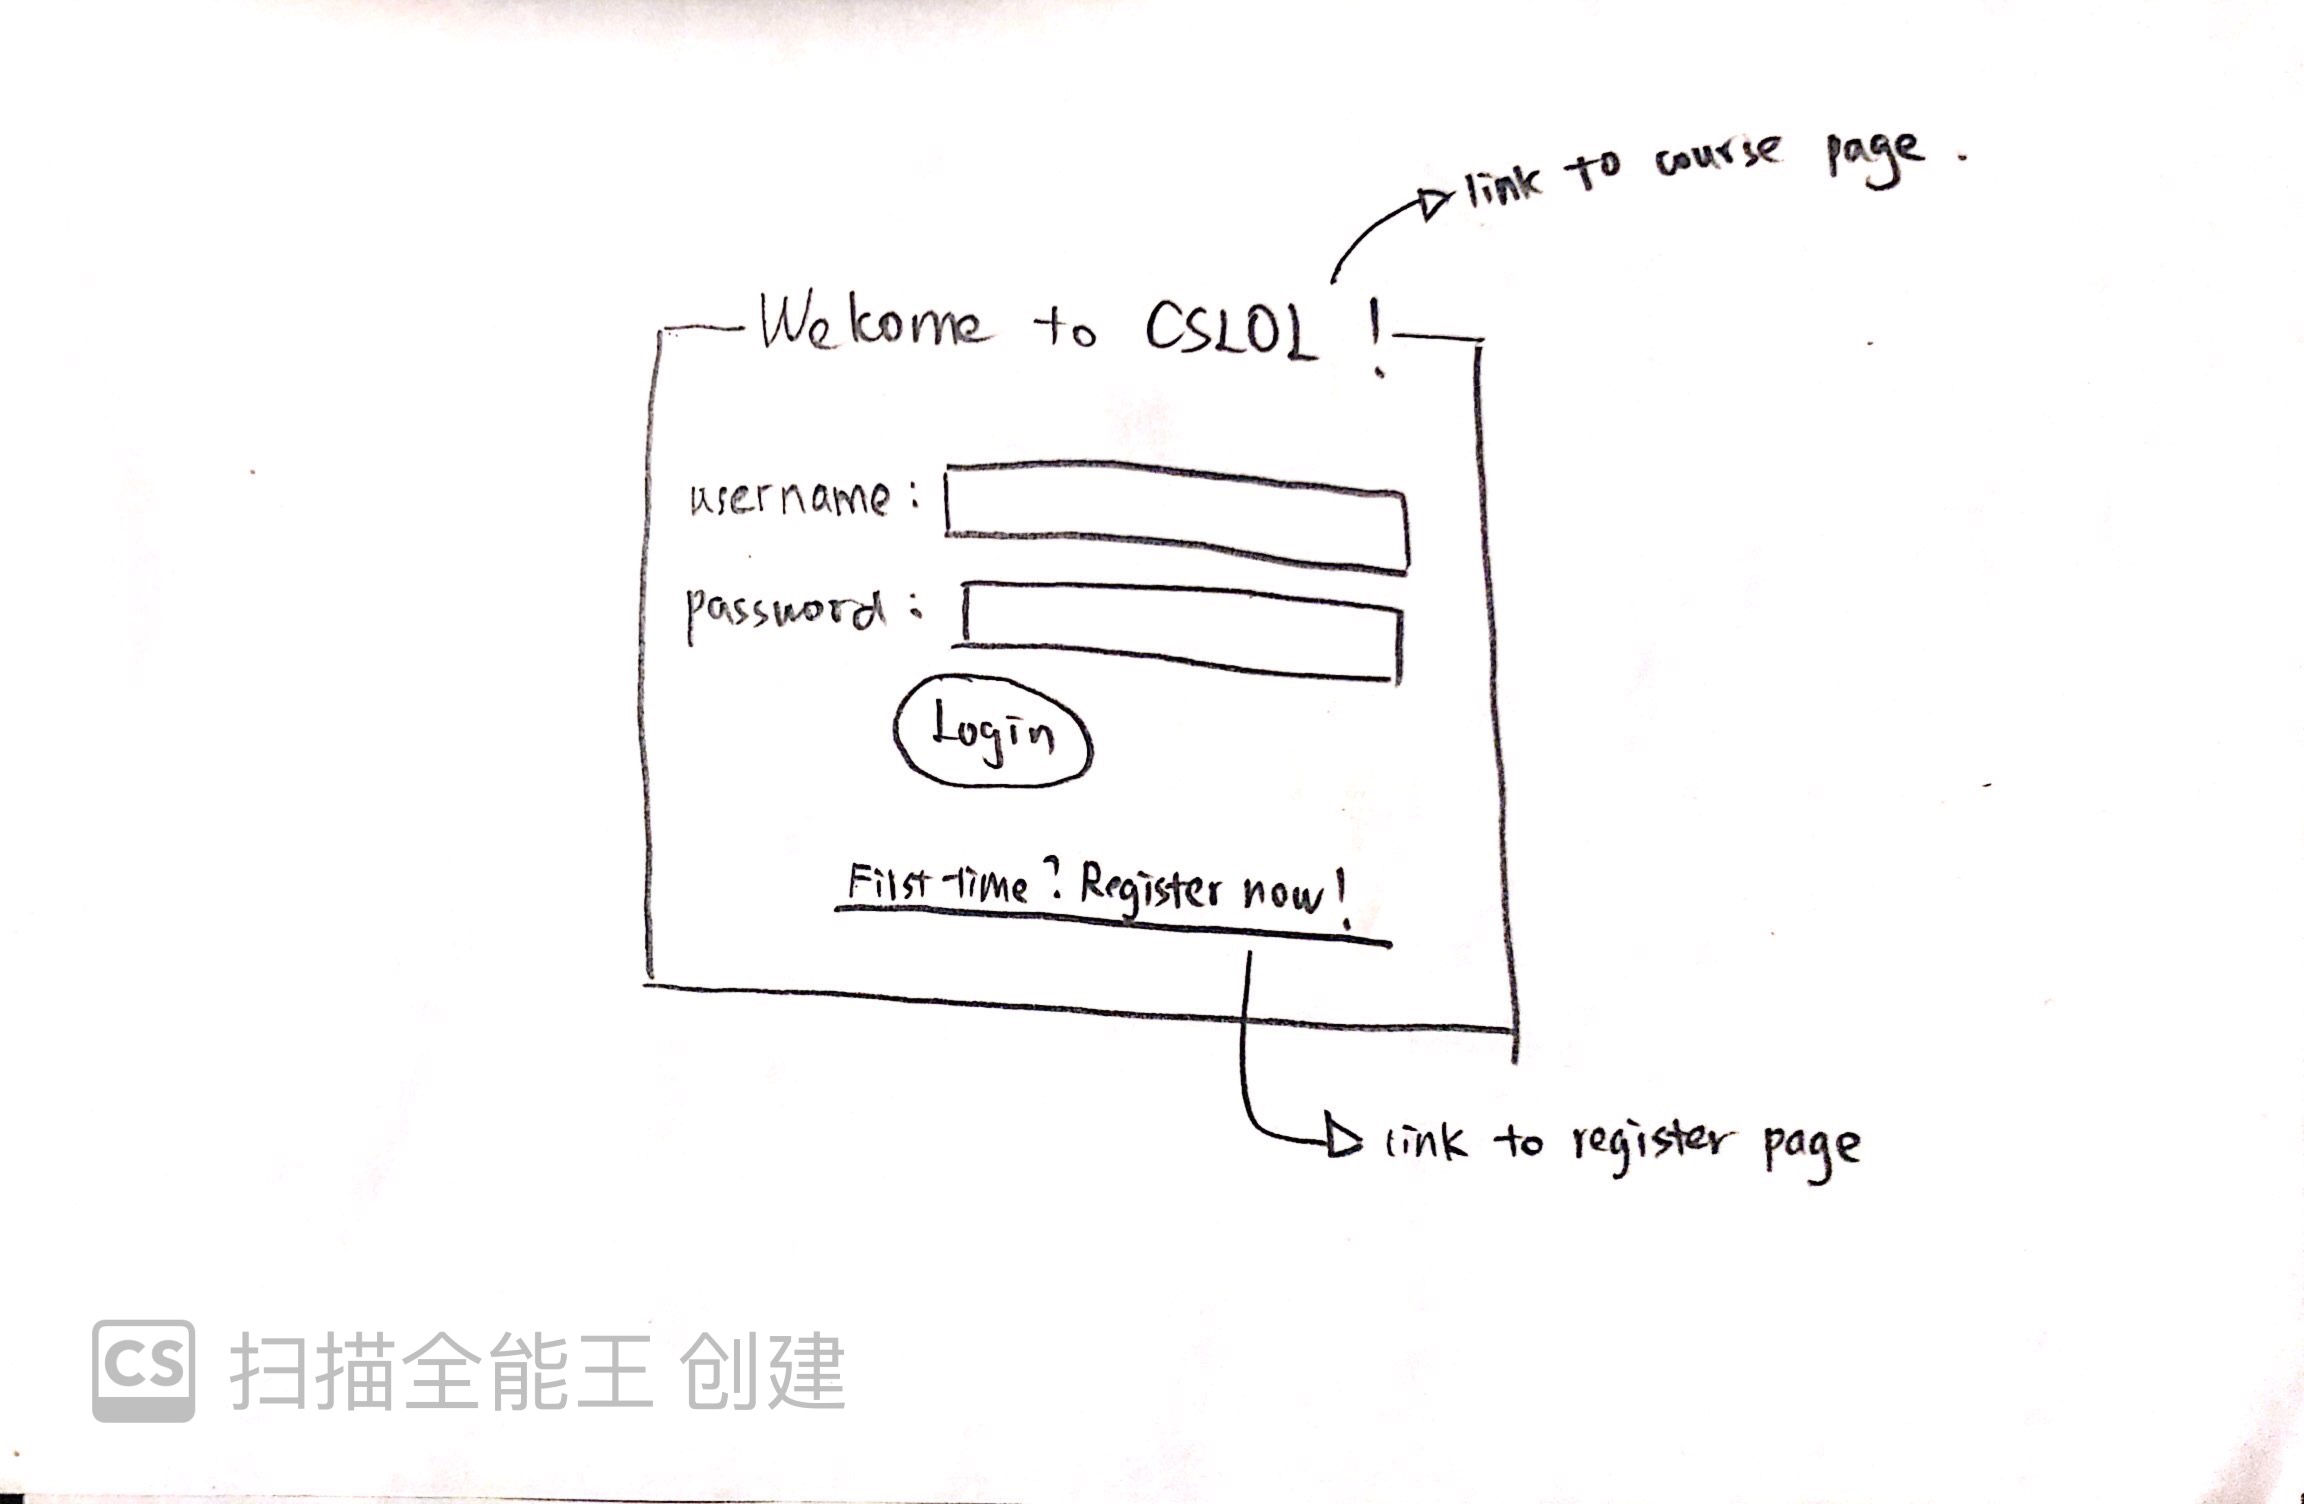 link to course page .
Welcome to CSLOL !
username :
password :
Login
First time ? Register now !
link to register page
CS 扫描全能王 创建